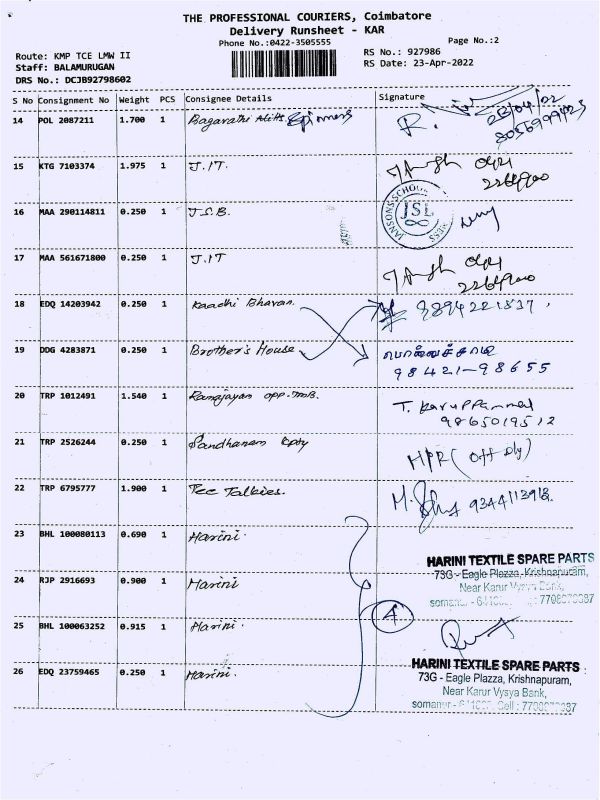 THE PROFESSIONAL COURIERS, Coimbatore
Delivery Runsheet - KAR
Phone No.:0422-3505555
Page No.:2
Route: KMP TCE LMW II
RS No.: 927986
Staff: BALAMURUGAN
RS Date: 23-Apr-2022
DRS No.: DCJB92798602
S No Consignment No Weight PCS Consignee Details Signature
14 POL 2087211 1.700 1 Bagavathi Spinners
15 KTG 7103374 1.975 1 J.IT.
16 MAA 290114811 0.250 1 J.S.B.
JSL
17 MAA 561671800 0.250 1 J.IT
18 EDQ 14203942 0.250 1 Kaadhi Bhavan.
19 DDG 4283871 0.250 1 Brother's House
98421-98655
20 TRP 1012491 1.540 1 Ramajayan opp. TMB.
T. Karuppammal
9865019512
21 TRP 2526244 0.250 1 Sandhanam
HPR (Off Dly)
22 TRP 6795777 1.900 1 Tee Talkies.
23 BHL 100080113 0.690 1 Harini.
HARINI TEXTILE SPARE PARTS
73G - Eagle Plazza, Krishnapuram,
Near Karur Vysya Bank,
24 RJP 2916693 0.900 1 Harini
4
25 BHL 100063252 0.915 1 Harini.
26 EDQ 23759465 0.250 1 Harini.
HARINI TEXTILE SPARE PARTS
73G - Eagle Plazza, Krishnapuram,
Near Karur Vysya Bank,